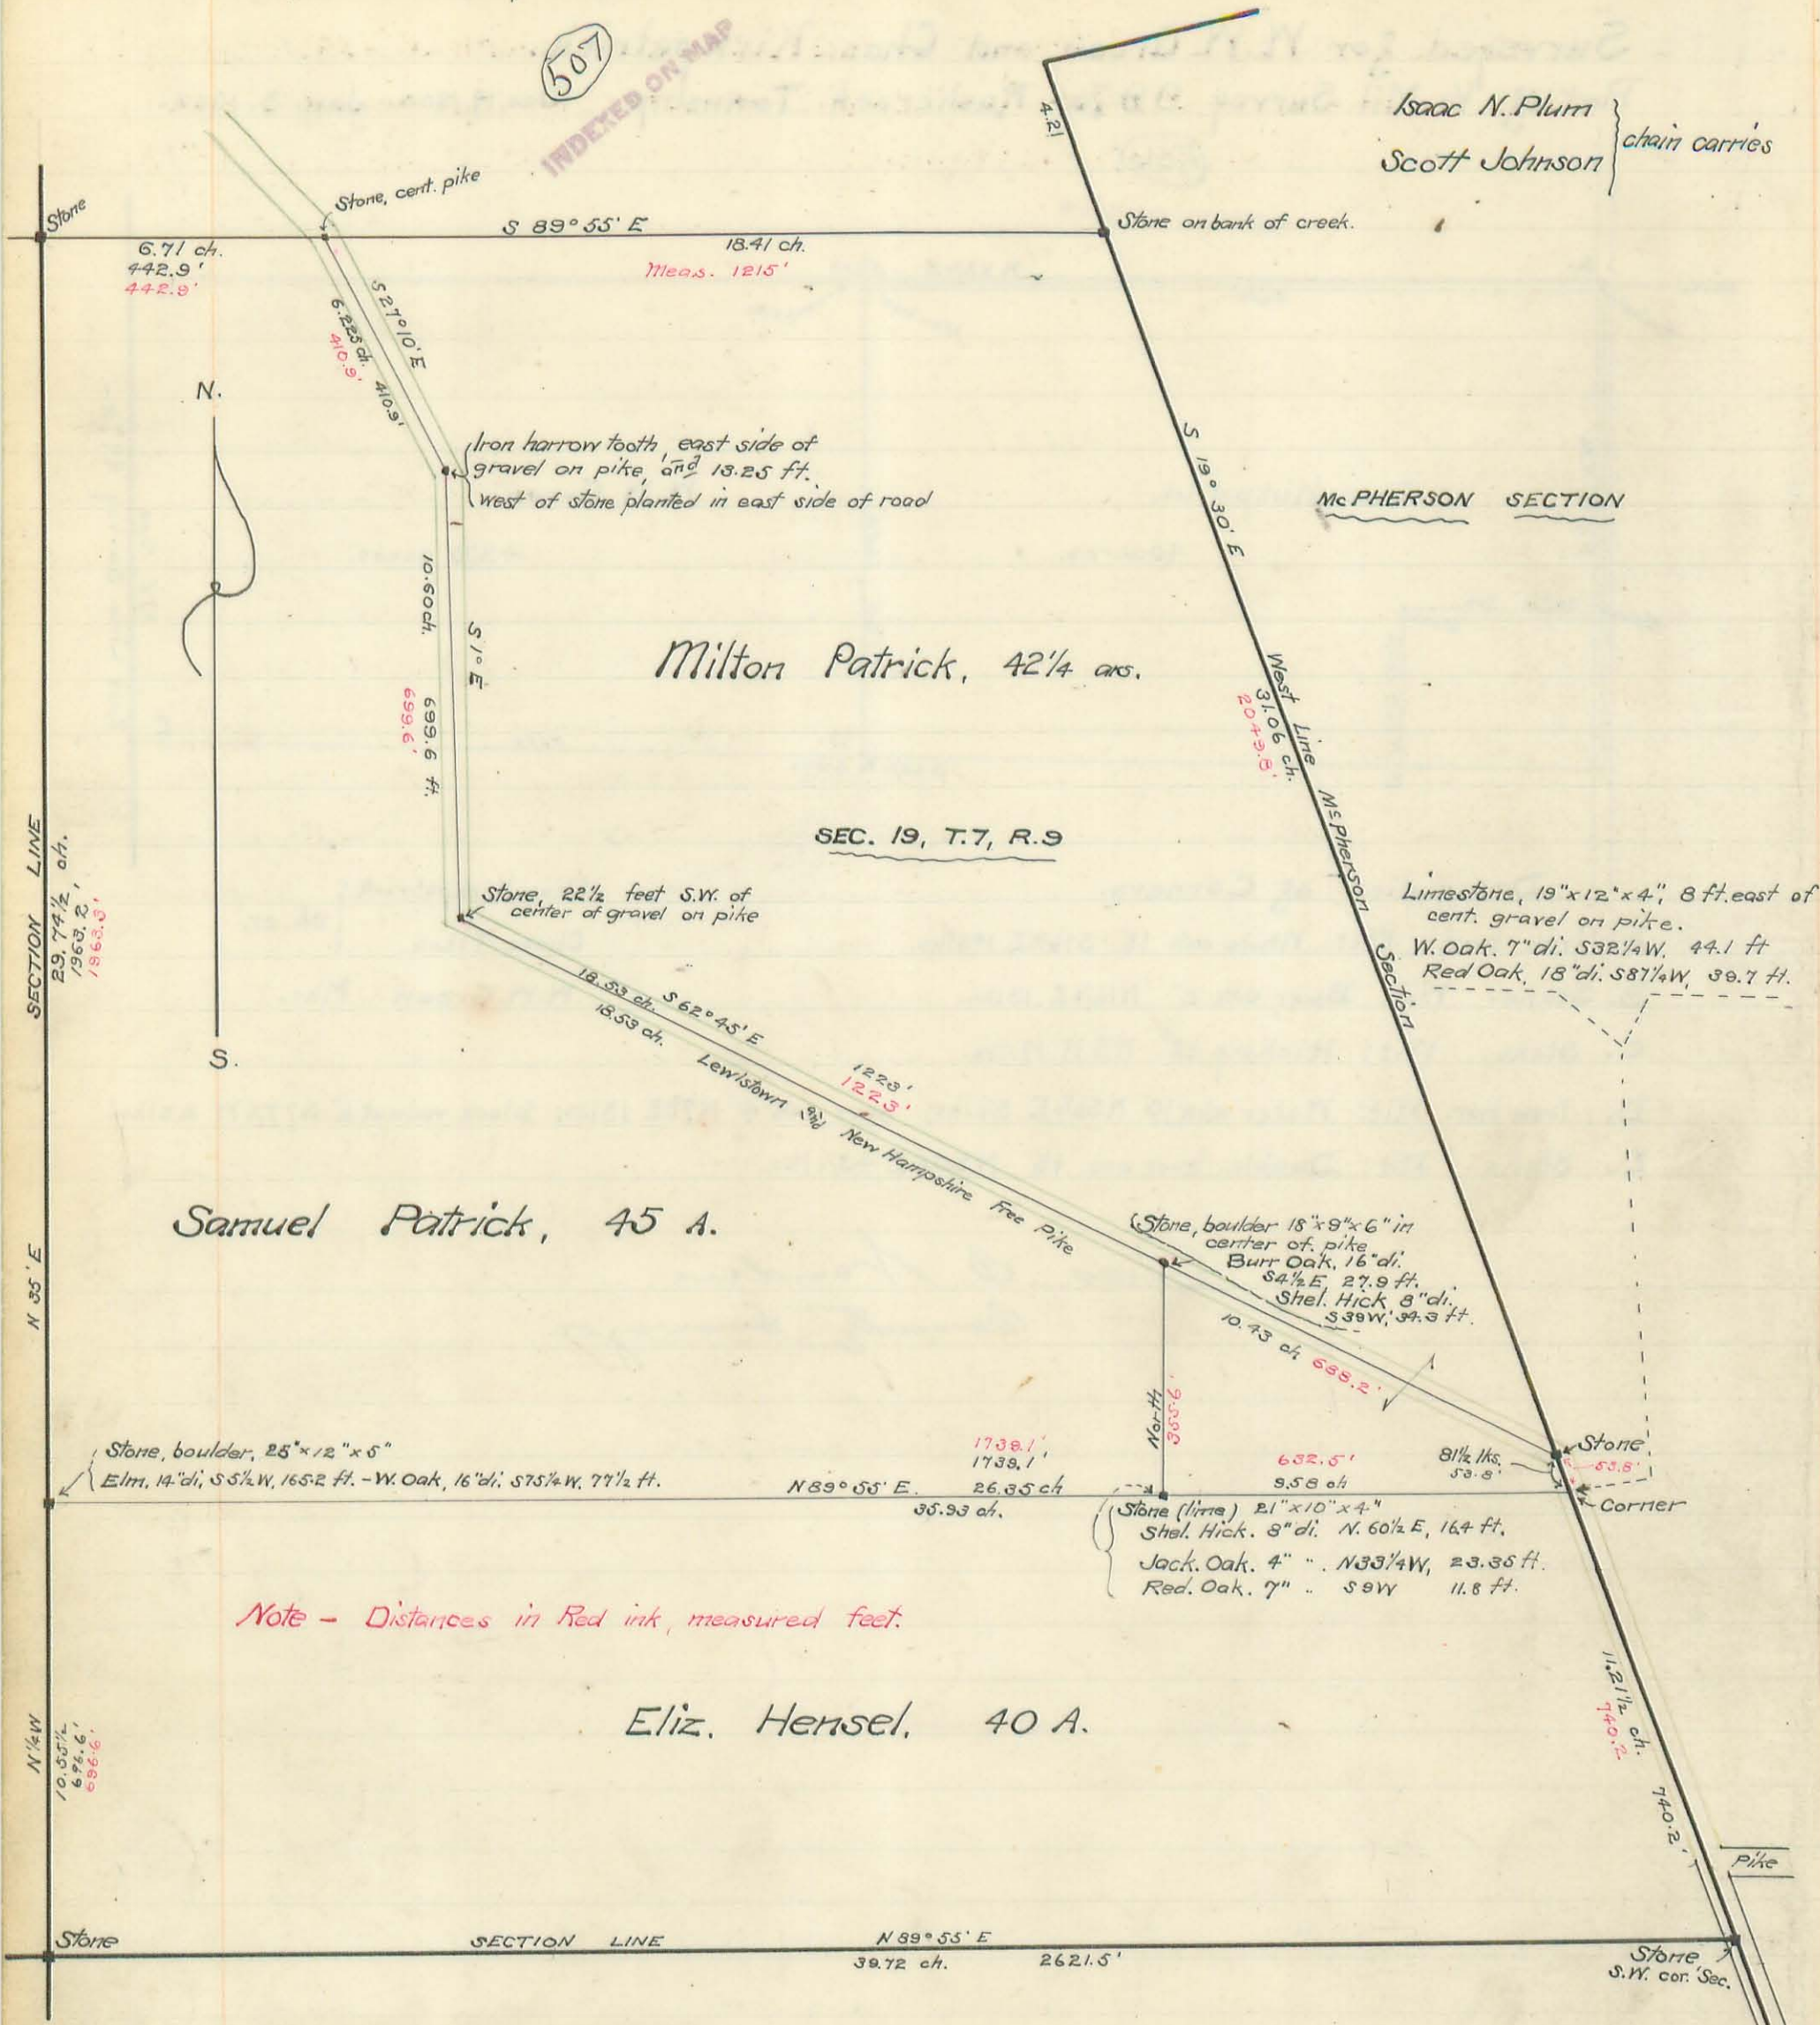 507
INDEXED ON MAP
Isaac N. Plum
Scott Johnson
chain carries
4.21
Stone
Stone, cent. pike
S 89° 55' E
Stone on bank of creek.
6.71 ch.
442.9'
442.9'
18.41 ch.
Meas. 1215'
S 27° 10' E
6.225 ch. 410.9'
410.9'
N.
S.
Iron harrow tooth, east side of
gravel on pike, and 13.25 ft.
west of stone planted in east side of road
S 19° 30' E
McPHERSON SECTION
10.60 ch. 699.6 ft.
699.6'
S 1° E
Milton Patrick, 42 1/4 ars.
West Line McPherson Section
31.06 ch.
2049.8'
SEC. 19, T.7, R.9
SECTION LINE
29.74 1/2 ch.
1963.2'
1963.3'
Stone, 22 1/2 feet S.W. of
center of gravel on pike
Limestone, 19" x 12" x 4", 8 ft. east of
cent. gravel on pike.
W. Oak. 7" di. S32 1/4 W. 44.1 ft
Red Oak, 18" di. S87 1/4 W, 39.7 ft.
18.53 ch. S 62° 45' E
18.53 ch.
1223'
1223'
Lewistown and New Hampshire Free Pike
Samuel Patrick, 45 A.
Stone, boulder 18" x 9" x 6" in
center of pike
Burr Oak, 16" di.
S4 1/2 E, 27.9 ft.
Shel. Hick 8" di.
S39W, 34.3 ft.
10.43 ch 688.2'
N 35' E
North
355.6'
Stone, boulder, 25" x 12" x 5"
Elm. 14" di, S5 1/2 W, 165.2 ft. - W. Oak, 16" di. S75 1/4 W. 77 1/2 ft.
1739.1'
1739.1'
N 89° 55' E. 26.35 ch
35.93 ch.
632.5'
9.58 ch
81 1/2 lks.
53.8'
Stone
53.8'
Corner
Stone (lime) 21" x 10" x 4"
Shel. Hick. 8" di. N. 60 1/2 E, 16.4 ft.
Jack. Oak. 4" " . N33 1/4 W, 23.35 ft.
Red. Oak. 7" " S 9 W 11.8 ft.
Note - Distances in Red ink, measured feet.
Eliz. Hensel, 40 A.
N 1/4 W
10.55 1/2
696.6'
696.6'
11.21 1/2 ch.
740.2
740.2'
Pike
Stone
SECTION LINE
N 89° 55' E
39.72 ch. 2621.5'
Stone
S.W. cor. Sec.